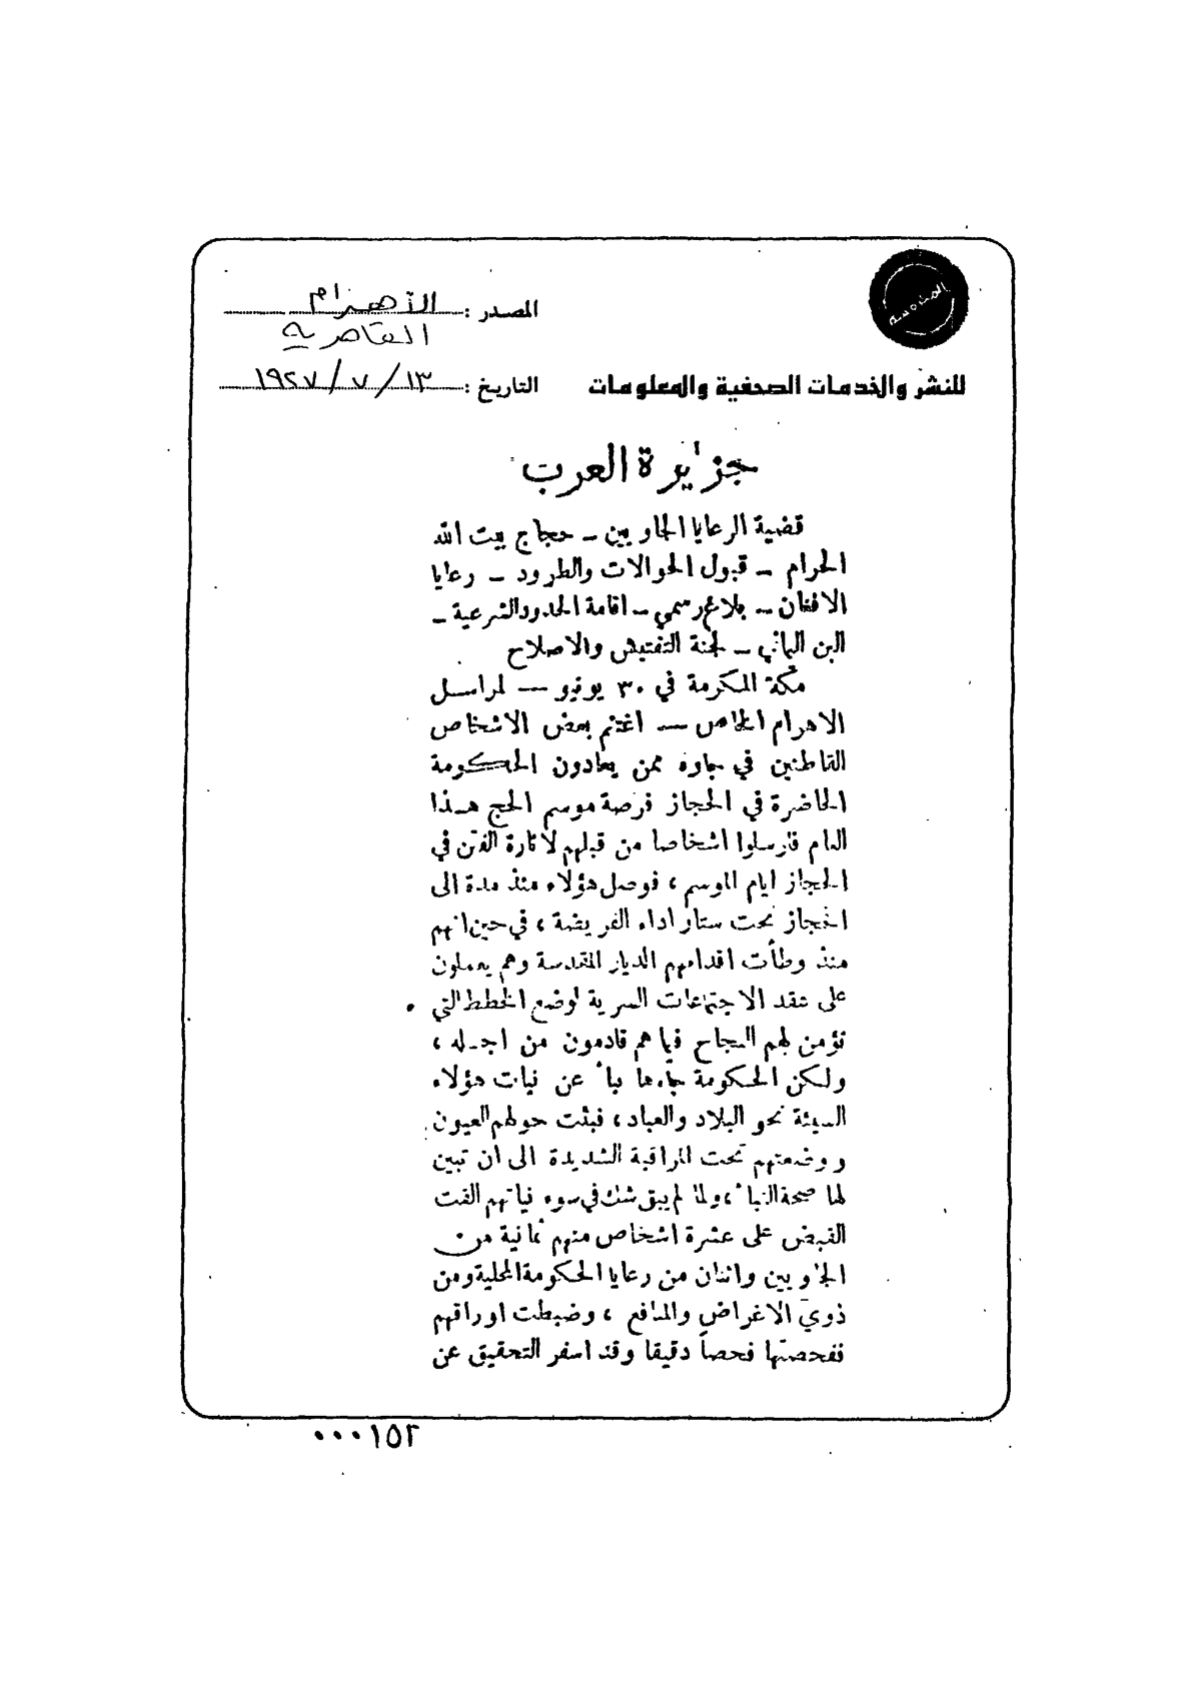 المصدر : الأهرام
القاهرية
للنشر والخدمات الصحفية والمعلومات
التاريخ : ١٣ / ٧ / ١٩٢٧
جزيرة العرب
قضية الرعايا الجاويين – حجاج بيت الله
الحرام – قبول الحوالات والطرود – رعايا
الافغان – بلاغ رسمي – اقامة الحدود الشرعية –
البن اليماني – لجنة التفتيش والاصلاح
مكة المكرمة في ٣٠ يونيو — لمراسل
الاهرام الخاص — اغتنم بعض الاشخاص
القاطنين في جاوه ممن يعادون الحكومة
الحاضرة في الحجاز فرصة موسم الحج هذا
العام فارسلوا اشخاصا من قبلهم لاثارة الفتن في
الحجاز ايام الموسم ، فوصل هؤلاء منذ مدة الى
الحجاز تحت ستار اداء الفريضة ، في حين انهم
منذ وطأت اقدامهم الديار المقدسة وهم يعملون
على عقد الاجتماعات السرية لوضع الخطط التي
تؤمن لهم النجاح فيما هم قادمون من اجله ،
ولكن الحكومة جاءها نبأ عن نيات هؤلاء
السيئة نحو البلاد والعباد ، فبثت حولهم العيون
ووضعتهم تحت المراقبة الشديدة الى ان تبين
لها صحة النبأ ، ولما لم يبق شك في سوء نياتهم القت
القبض على عشرة اشخاص منهم ثمانية من
الجاويين واثنان من رعايا الحكومة المحلية ومن
ذوي الاغراض والمنافع ، وضبطت اوراقهم
ففحصتها فحصاً دقيقا وقد اسفر التحقيق عن
٠٠٠١٥٢